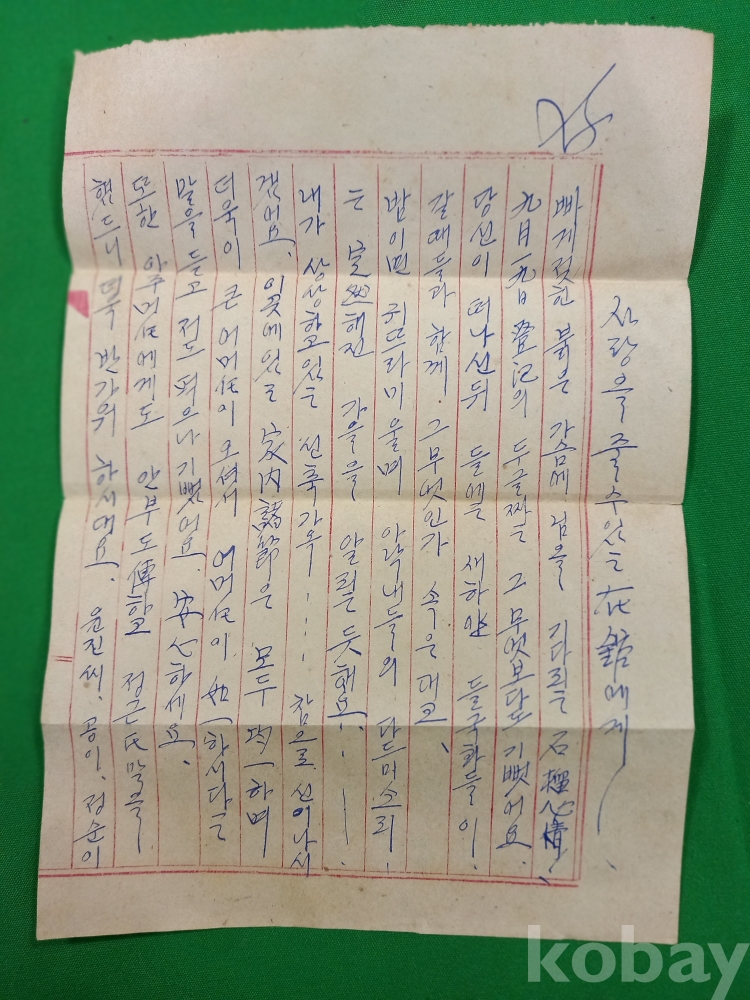 사랑을 줄수있는 在錧에게
빠게젖한 붉은 가슴에 님을 기다리는 石榴心情!
九月 一九日 登記의 두글짜는 그 무엇보다도 기뻤어요.
당신이 떠나신뒤 들에는 새하얀 들국화들이,
갈때들과 함께. 그무엇인가 속은대고、
밤이면 귀뜨라미 울며 아낙내들의 다드머소리.
는 해진 가을을 알리는듯해요
내가 상상하고있는 신축가옥 … 참으로 신이나서
겠어요. 이곳에있는 家內諸節은 모두 均一하며
더욱이 큰 어머任이 오셔서 어머任이 如一하시다는
말을 듣고 저는 퍽으나 기뻤어요. 安心하세요、
또한 아주머任에게도 안부도 傳하고 정근氏 말을
했드니 퍽 반가워 하시대요. 윤진씨. 공이. 정순이
kobay